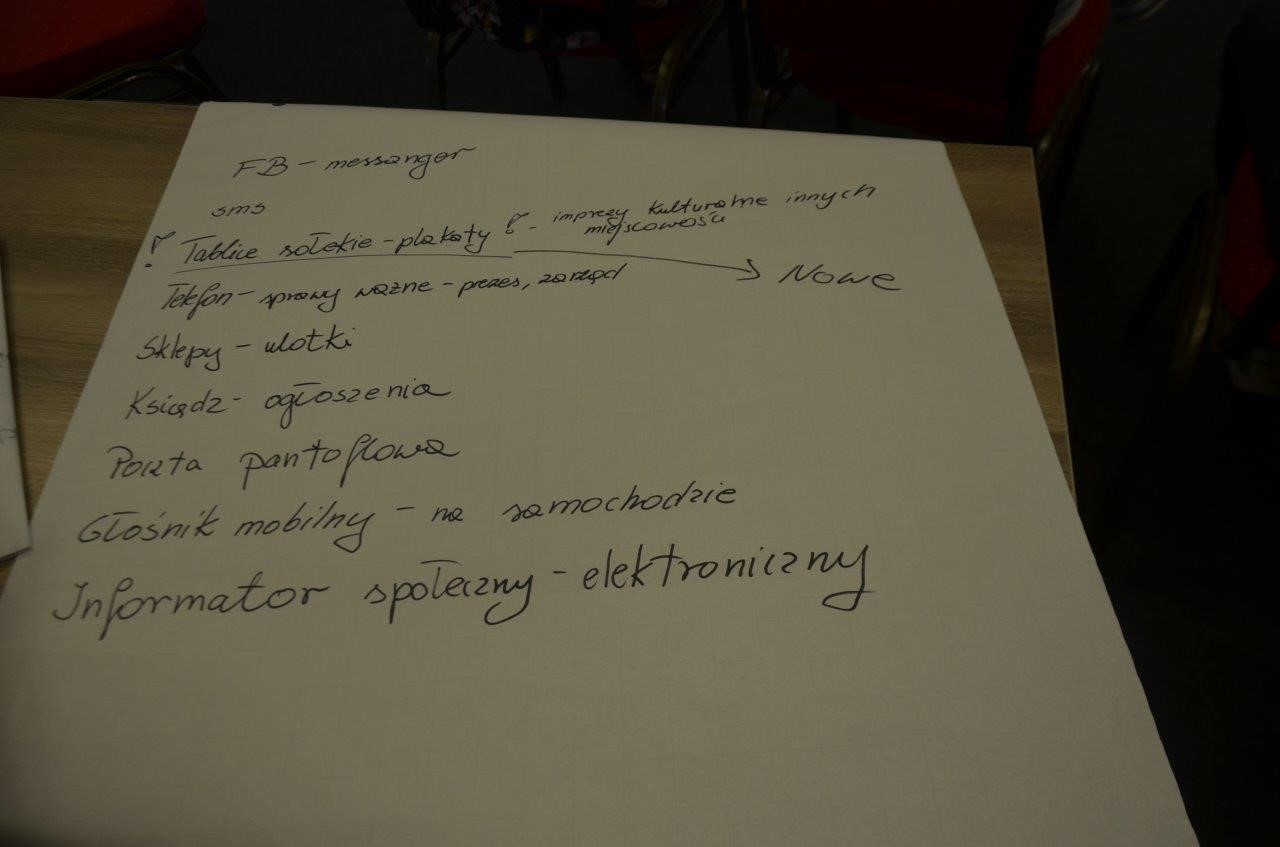 FB - messanger
sms
! Tablice sołekie - plakaty ! - imprezy kulturalne innych
miejscowości
→ Nowe
Telefon - sprawy ważne - prezes, zarząd
Sklepy - ulotki
Ksiądz - ogłoszenia
Poczta pantoflowa
Głośnik mobilny - na samochodzie
Informator społeczny - elektroniczny